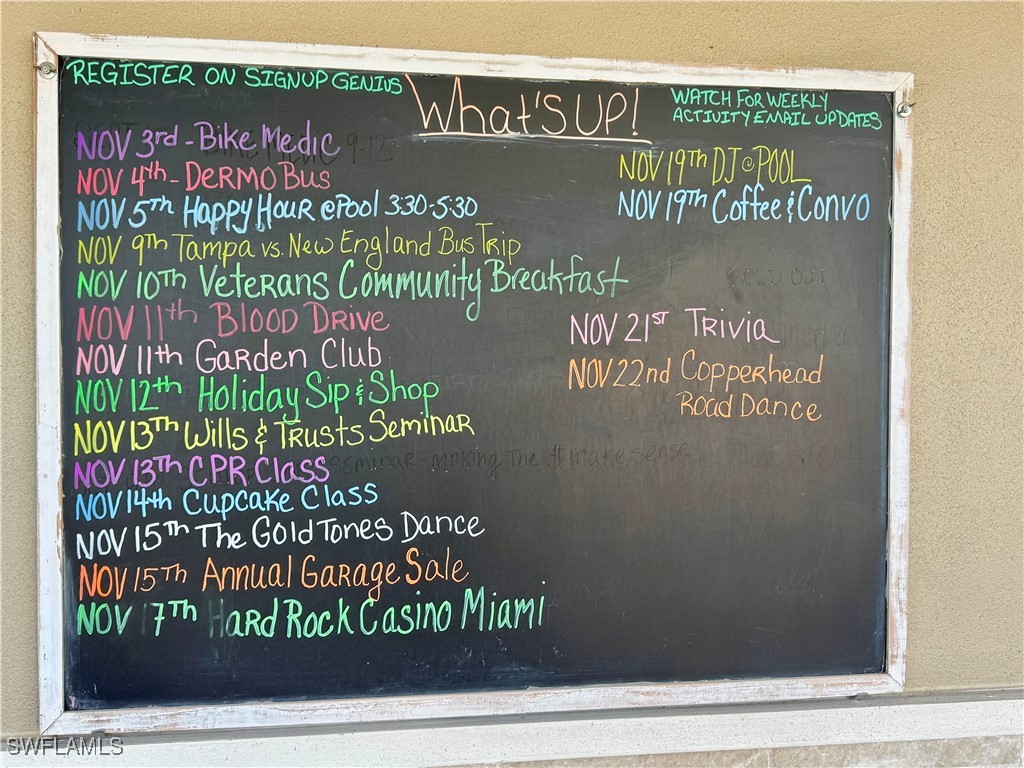 REGISTER ON SIGNUP GENIUS
What's UP!
WATCH FOR WEEKLY
ACTIVITY EMAIL UPDATES
NOV 3rd - Bike Medic
NOV 4th - DERMO BUS
NOV 5th Happy Hour @ Pool 3:30-5:30
NOV 9th Tampa vs. New England Bus Trip
NOV 10th Veterans Community Breakfast
NOV 11th Blood Drive
NOV 11th Garden Club
NOV 12th Holiday Sip & Shop
NOV 13th Wills & Trusts Seminar
NOV 13th CPR Class
NOV 14th Cupcake Class
NOV 15th The Gold Tones Dance
NOV 15th Annual Garage Sale
NOV 17th Hard Rock Casino Miami
NOV 19th DJ @ POOL
NOV 19th Coffee & Convo
NOV 21st Trivia
NOV 22nd Copperhead
Road Dance
SWFLAMLS